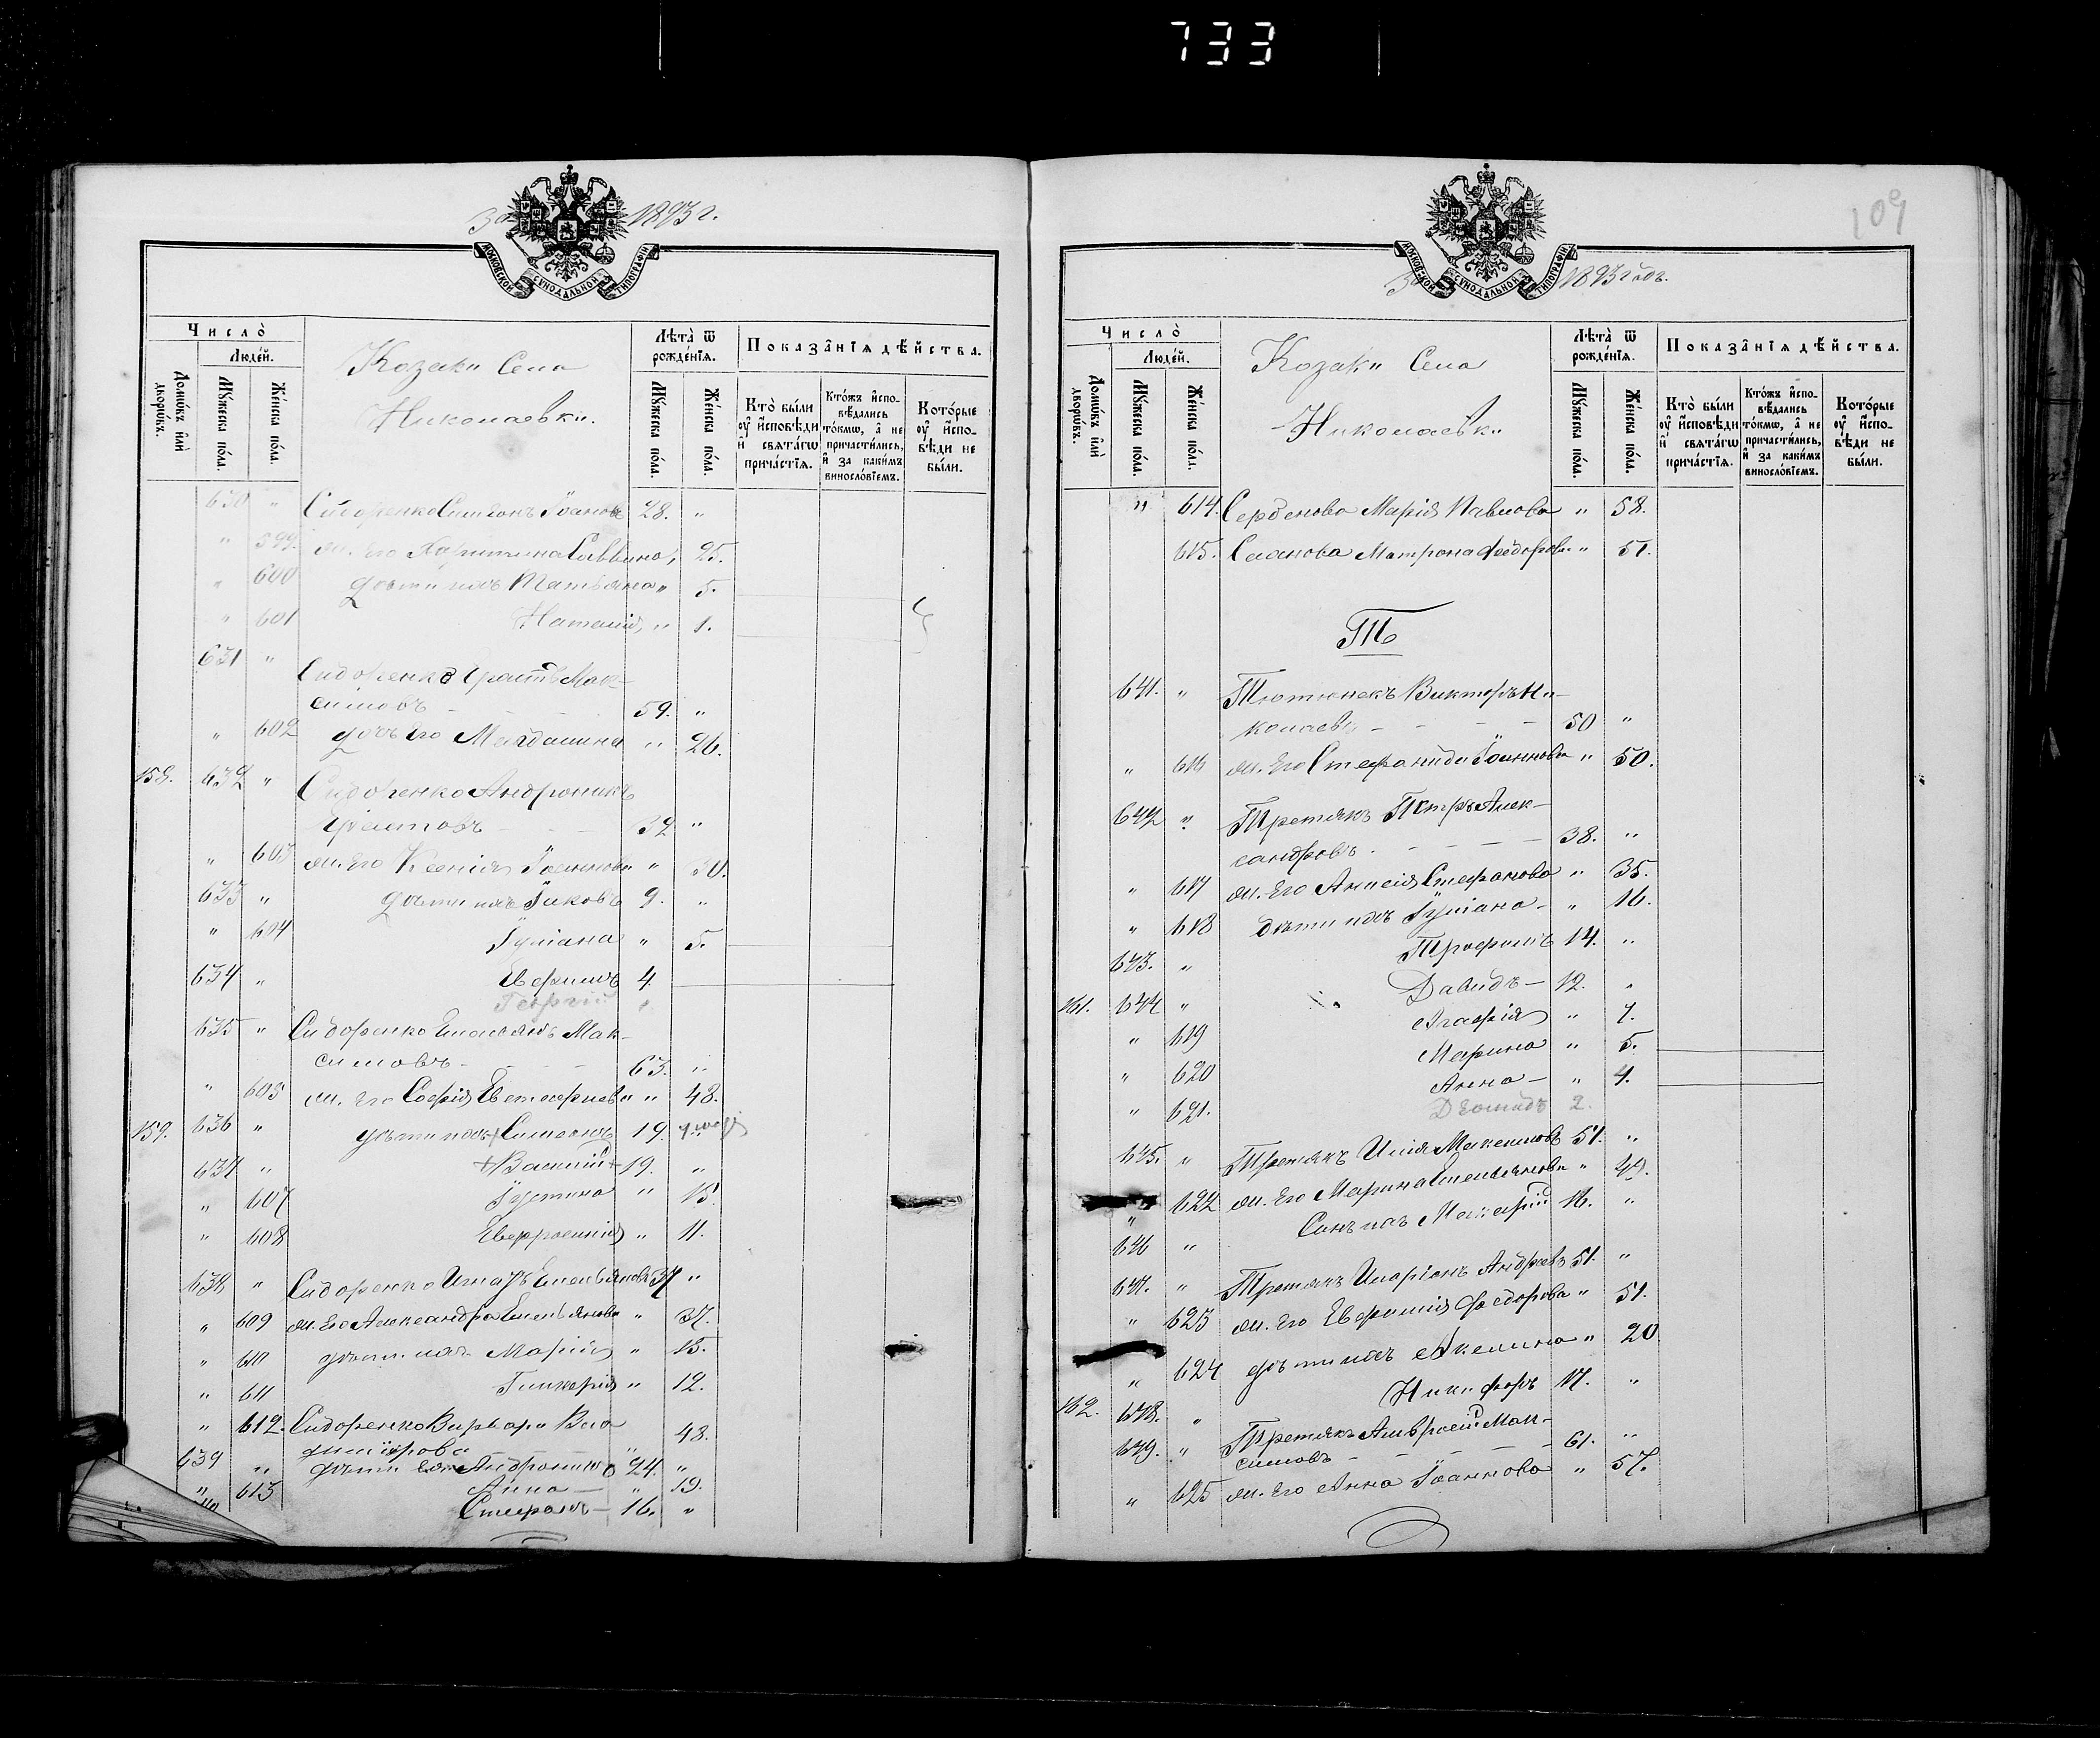 733
За 1893 г.
МОСКОВСКОЙ СѴНОДАЛЬНОЙ ТИПОГРАФІИ
Число̀
Людéй.
Домѡ́въ и҆лѝ дворѡ́въ.
Мꙋ́жеска по́ла.
Же́нска по́ла.
Козаки Села
Николаевки.
Лѣта̀ ѿ рожде́нїѧ.
Мꙋ́жеска по́ла.
Же́нска по́ла.
Показа̂нїѧ дѣ́йства.
Кто̀ бы́ли оу҆ и҆сповѣ́ди и҆ свѧта́гѡ прича́стїѧ.
Кто́жъ и҆сповѣ́дались то́кмѡ, а҆ не причасти́лись, и҆ за каки́мъ винослóвїемъ.
Кото́рые оу҆ и҆сповѣ́ди не бы́ли.
630 " Сидоренко Симеонъ Іоановъ 28. "
" 599. ж. его Харитина Саввина " 25.
" 600 дѣти ихъ Татьяна " 5.
" 601 Наталія " 1.
631 " Сидоренко Ерастъ Мак-
симовъ - - - 59. "
" 602 дочь его Магдалина " 26.
158. 632 " Сидоренко Андроникъ
Ерастовъ - - 32 "
" 603 ж. его Ксенія Іоаннова " 30.
633 " дѣти ихъ Іаковъ 9. "
" 604 Іуліана " 5.
634 " Евфимъ 4.
Георгій "
635 " Сидоренко Емельянъ Мак-
симовъ - - - - 63. "
" 605 ж. его Софія Евстафиева " 48.
159. 636 " дѣти ихъ + Симеонъ 19.
637 " + Василій + 19. "
" 607 Іустина " 15.
" 608 Евфросинія " 11.
638 " Сидоренко Игнатъ Емельяновъ 37 "
" 609 ж. его Александра Емельянова " 37.
" 610 дѣти ихъ Марія " 15.
" 611 Гликерія " 12.
" 612. Сидоренко Варвара Вла-
димірова " 48.
639 " дѣти ея Андроникъ 24. "
" 613 Анна - " 19.
Стефанъ - 16. "
109
За 1893 годъ.
МОСКОВСКОЙ СѴНОДАЛЬНОЙ ТИПОГРАФІИ
Число̀
Людéй.
Домѡ́въ и҆лѝ дворѡ́въ.
Мꙋ́жеска по́ла.
Же́нска по́ла.
Козаки Села
Николаевки
Лѣта̀ ѿ рожде́нїѧ.
Мꙋ́жеска по́ла.
Же́нска по́ла.
Показа̂нїѧ дѣ́йства.
Кто̀ бы́ли оу҆ и҆сповѣ́ди и҆ свѧта́гѡ прича́стїѧ.
Кто́жъ и҆сповѣ́дались то́кмѡ, а҆ не причасти́лись, и҆ за каки́мъ винослóвїемъ.
Кото́рые оу҆ и҆сповѣ́ди не бы́ли.
" 614. Серденова Марія Павлова " 58.
615. Матрона Ѳедоров. " 51.
Т
641. " Тютюнекъ Викторъ Ни-
колаевъ - - - - 50 "
" 616 ж. его Стефанида Іоаннова " 50.
642 " Третякъ Петръ Алек-
сандровъ - - - - 38. "
" 617 ж. его Анисія Стефанова " 35.
" 618 дѣти ихъ Іуліана - " 16.
643. " Трофимъ 14. "
161. 644 " Давидъ - 12. "
" 619 Агафія " 7.
" 620 Марина " 5.
" 621. Анна - " 4.
Діомидъ 2.
645. " Третякъ Илія Максимовъ 51. "
" 622 ж. его Марина Емельянова " 49.
646 " Сынъ ихъ Макарій 16. "
647. " Третякъ Иларіонъ Андреевъ 51. "
" 623 ж. его Евфимія Ѳедорова " 51.
" 624 дѣти ихъ Акелина " 20.
162. 648. " Никифоръ 17. "
649. " Третякъ Амвросій Мак-
симовъ - - - - 61. "
" 625 ж. его Анна Іоаннова " 57.